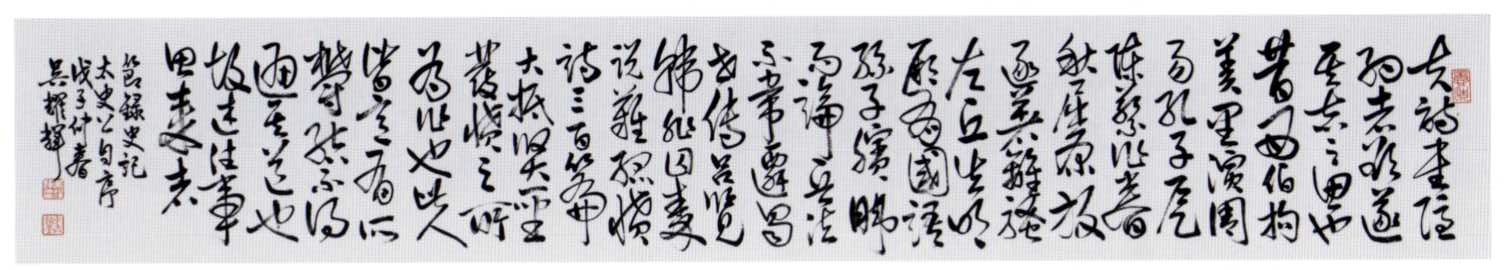 夫詩書隱
約者欲遂
其志之思也
昔西伯拘
羑里演周
易孔子戹
陳蔡作春
秋屈原放
逐著離騷
左丘失明
厥有國語
孫子臏腳
而論兵法
不韋遷蜀
世傳呂覽
韓非囚秦
說難孤憤
詩三百篇
大抵賢聖
發憤之所
為作也此人
皆意有所
鬱結不得
通其道也
故述往事
思來者
節錄史記
太史公自序
戊子仲春
吳耀輝